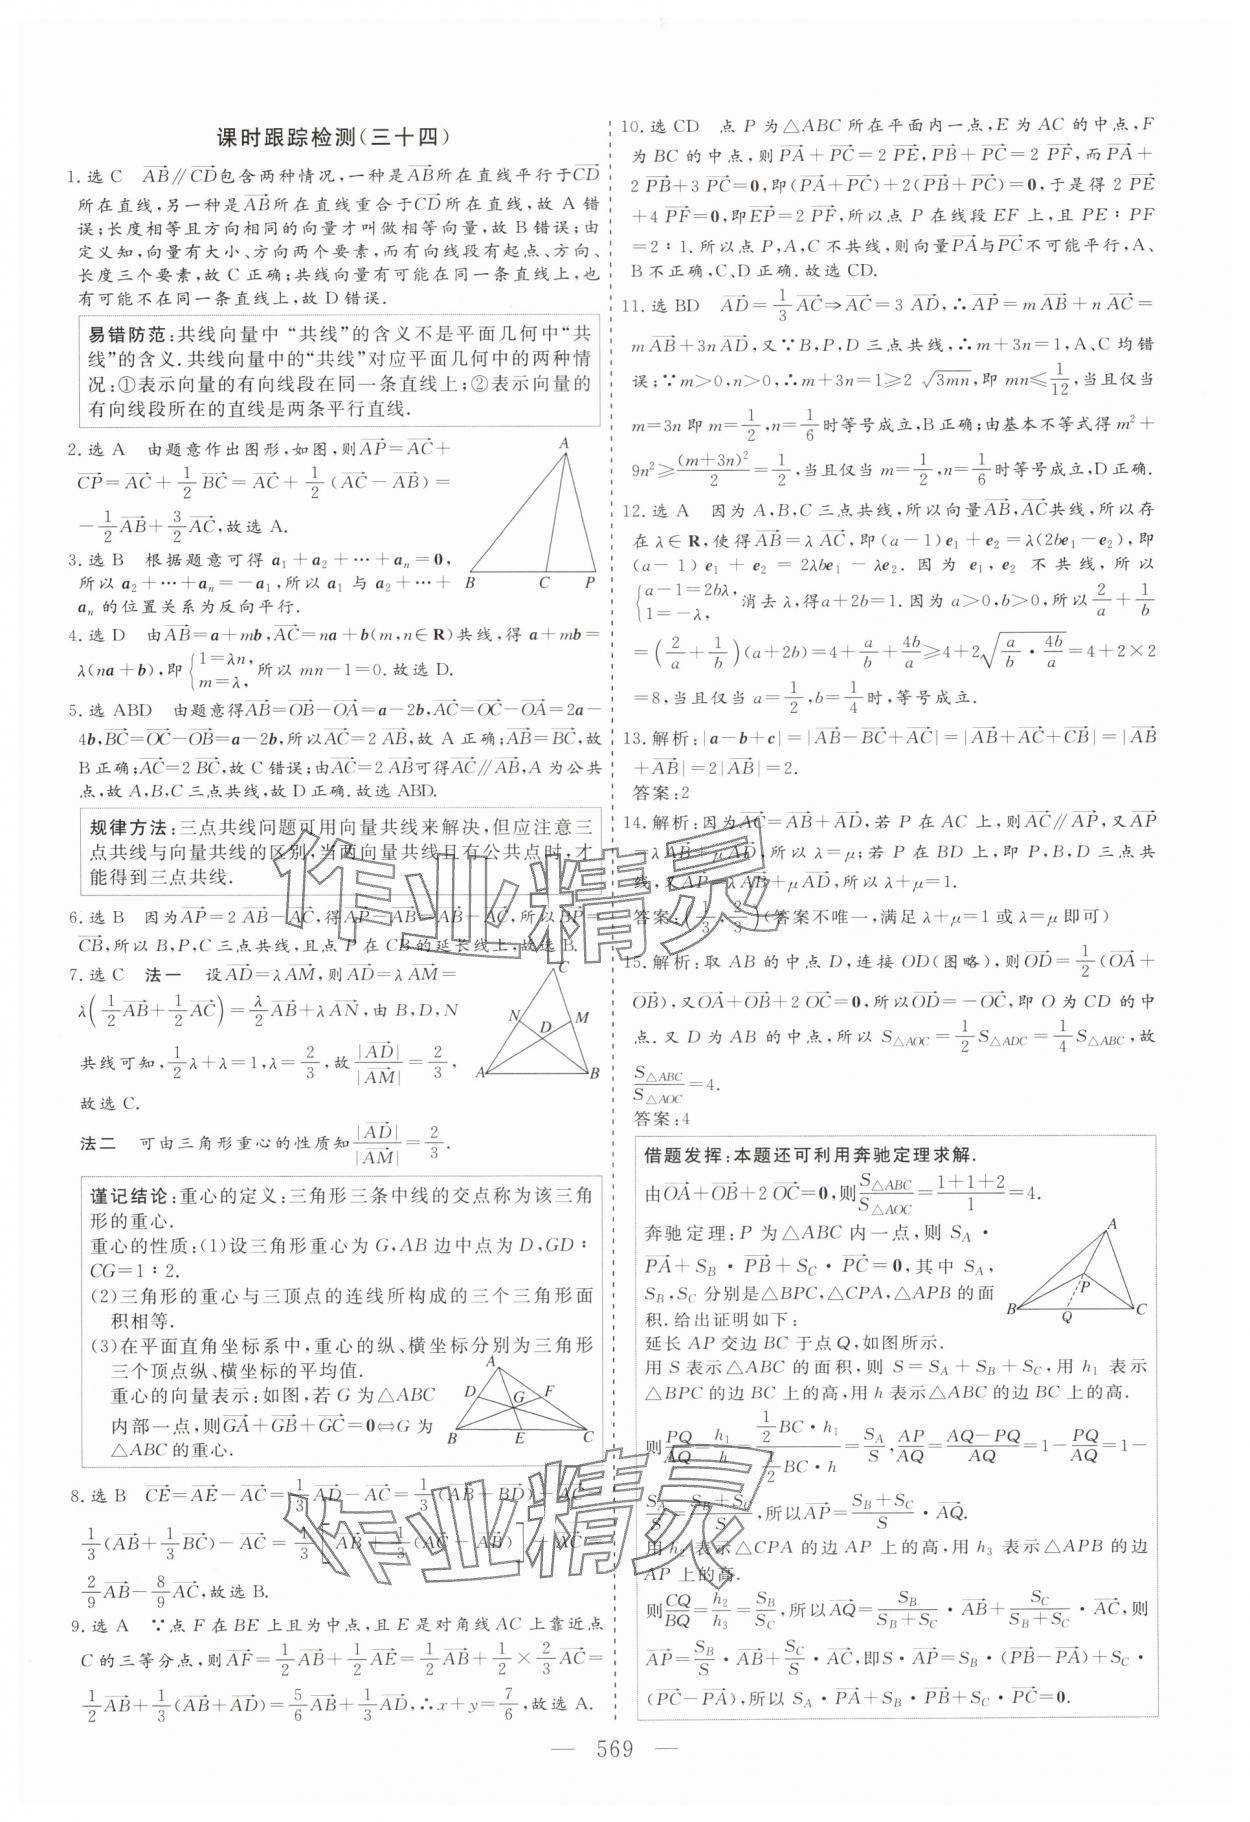 课时跟踪检测(三十四)
1.选C $\overrightarrow{AB}/\!/\overrightarrow{CD}$包含两种情况,一种是$\overrightarrow{AB}$所在直线平行于$\overrightarrow{CD}$
所在直线,另一种是$\overrightarrow{AB}$所在直线重合于$\overrightarrow{CD}$所在直线,故 A 错
误;长度相等且方向相同的向量才叫做相等向量,故 B 错误;由
定义知,向量有大小、方向两个要素,而有向线段有起点、方向、
长度三个要素,故 C 正确;共线向量有可能在同一条直线上,也
有可能不在同一条直线上,故 D 错误.
易错防范:共线向量中“共线”的含义不是平面几何中“共
线”的含义.共线向量中的“共线”对应平面几何中的两种情
况:①表示向量的有向线段在同一条直线上;②表示向量的
有向线段所在的直线是两条平行直线.
2.选 A 由题意作出图形,如图,则$\overrightarrow{AP}=\overrightarrow{AC}+$
$\overrightarrow{CP}=\overrightarrow{AC}+\frac{1}{2}\overrightarrow{BC}=\overrightarrow{AC}+\frac{1}{2}(\overrightarrow{AC}-\overrightarrow{AB})=$
$-\frac{1}{2}\overrightarrow{AB}+\frac{3}{2}\overrightarrow{AC}$,故选 A.
A
B C P
3.选 B 根据题意可得 $a_1+a_2+\cdots+a_n=0$,
所以 $a_2+\cdots+a_n=-a_1$,所以 $a_1$ 与 $a_2+\cdots+$
$a_n$ 的位置关系为反向平行.
4.选 D 由$\overrightarrow{AB}=a+mb,\overrightarrow{AC}=na+b(m,n\in R)$共线,得 $a+mb=$
$\lambda(na+b)$,即$\begin{cases}1=\lambda n,\\m=\lambda,\end{cases}$所以 $mn-1=0$.故选 D.
5.选 ABD 由题意得$\overrightarrow{AB}=\overrightarrow{OB}-\overrightarrow{OA}=a-2b,\overrightarrow{AC}=\overrightarrow{OC}-\overrightarrow{OA}=2a-$
$4b,\overrightarrow{BC}=\overrightarrow{OC}-\overrightarrow{OB}=a-2b$,所以$\overrightarrow{AC}=2\overrightarrow{AB}$,故 A 正确;$\overrightarrow{AB}=\overrightarrow{BC}$,故
B 正确;$\overrightarrow{AC}=2\overrightarrow{BC}$,故 C 错误;由$\overrightarrow{AC}=2\overrightarrow{AB}$可得$\overrightarrow{AC}/\!/\overrightarrow{AB}$,A 为公共
点,故 A,B,C 三点共线,故 D 正确.故选 ABD.
规律方法:三点共线问题可用向量共线来解决,但应注意三
点共线与向量共线的区别,当两向量共线且有公共点时,才
能得到三点共线.
6.选 B 因为$\overrightarrow{AP}=2\overrightarrow{AB}-\overrightarrow{AC}$,得$\overrightarrow{AP}-\overrightarrow{AB}=\overrightarrow{AB}-\overrightarrow{AC}$,所以$\overrightarrow{BP}=$
$\overrightarrow{CB}$,所以 B,P,C 三点共线,且点 P 在 CB 的延长线上,故选 B.
7.选 C 法一 设$\overrightarrow{AD}=\lambda\overrightarrow{AM}$,则$\overrightarrow{AD}=\lambda\overrightarrow{AM}=$
$\lambda\left(\frac{1}{2}\overrightarrow{AB}+\frac{1}{2}\overrightarrow{AC}\right)=\frac{\lambda}{2}\overrightarrow{AB}+\lambda\overrightarrow{AN}$,由 B,D,N
共线可知,$\frac{1}{2}\lambda+\lambda=1,\lambda=\frac{2}{3}$,故$\frac{|\overrightarrow{AD}|}{|\overrightarrow{AM}|}=\frac{2}{3}$,
故选 C.
C
N M
D
A B
法二 可由三角形重心的性质知$\frac{|\overrightarrow{AD}|}{|\overrightarrow{AM}|}=\frac{2}{3}$.
谨记结论:重心的定义:三角形三条中线的交点称为该三角
形的重心.
重心的性质:(1)设三角形重心为 G,AB 边中点为 D,GD∶
CG=1∶2.
(2)三角形的重心与三顶点的连线所构成的三个三角形面
积相等.
(3)在平面直角坐标系中,重心的纵、横坐标分别为三角形
三个顶点纵、横坐标的平均值.
重心的向量表示:如图,若 G 为△ABC
内部一点,则$\overrightarrow{GA}+\overrightarrow{GB}+\overrightarrow{GC}=0\Leftrightarrow$G 为
△ABC 的重心.
A
D F
G
B E C
8.选 B $\overrightarrow{CE}=\overrightarrow{AE}-\overrightarrow{AC}=\frac{1}{3}\overrightarrow{AD}-\overrightarrow{AC}=\frac{1}{3}(\overrightarrow{AB}+\overrightarrow{BD})-\overrightarrow{AC}=$
$\frac{1}{3}(\overrightarrow{AB}+\frac{1}{3}\overrightarrow{BC})-\overrightarrow{AC}=\frac{1}{3}\left[\overrightarrow{AB}+\frac{1}{3}(\overrightarrow{AC}-\overrightarrow{AB})\right]-\overrightarrow{AC}=$
$\frac{2}{9}\overrightarrow{AB}-\frac{8}{9}\overrightarrow{AC}$,故选 B.
9.选 A ∵点 F 在 BE 上且为中点,且 E 是对角线 AC 上靠近点
C 的三等分点,则$\overrightarrow{AF}=\frac{1}{2}\overrightarrow{AB}+\frac{1}{2}\overrightarrow{AE}=\frac{1}{2}\overrightarrow{AB}+\frac{1}{2}\times\frac{2}{3}\overrightarrow{AC}=$
$\frac{1}{2}\overrightarrow{AB}+\frac{1}{3}(\overrightarrow{AB}+\overrightarrow{AD})=\frac{5}{6}\overrightarrow{AB}+\frac{1}{3}\overrightarrow{AD}$,∴$x+y=\frac{7}{6}$,故选 A.
10.选 CD 点 P 为△ABC 所在平面内一点,E 为 AC 的中点,F
为 BC 的中点,则$\overrightarrow{PA}+\overrightarrow{PC}=2\overrightarrow{PE},\overrightarrow{PB}+\overrightarrow{PC}=2\overrightarrow{PF}$,而$\overrightarrow{PA}+$
$2\overrightarrow{PB}+3\overrightarrow{PC}=0$,即$(\overrightarrow{PA}+\overrightarrow{PC})+2(\overrightarrow{PB}+\overrightarrow{PC})=0$,于是得 $2\overrightarrow{PE}$
$+4\overrightarrow{PF}=0$,即$\overrightarrow{EP}=2\overrightarrow{PF}$,所以点 P 在线段 EF 上,且 PE∶PF
=2∶1.所以点 P,A,C 不共线,则向量$\overrightarrow{PA}$与$\overrightarrow{PC}$不可能平行,A、
B 不正确,C、D 正确.故选 CD.
11.选 BD $\overrightarrow{AD}=\frac{1}{3}\overrightarrow{AC}\Rightarrow\overrightarrow{AC}=3\overrightarrow{AD}$,∴$\overrightarrow{AP}=m\overrightarrow{AB}+n\overrightarrow{AC}=$
$m\overrightarrow{AB}+3n\overrightarrow{AD}$,又∵B,P,D 三点共线,∴$m+3n=1$,A、C 均错
误;∵$m>0,n>0$,∴$m+3n=1\geq2\sqrt{3mn}$,即 $mn\leq\frac{1}{12}$,当且仅当
$m=3n$ 即 $m=\frac{1}{2},n=\frac{1}{6}$时等号成立,B 正确;由基本不等式得 $m^2+$
$9n^2\geq\frac{(m+3n)^2}{2}=\frac{1}{2}$,当且仅当 $m=\frac{1}{2},n=\frac{1}{6}$时等号成立,D 正确.
12.选 A 因为 A,B,C 三点共线,所以向量$\overrightarrow{AB},\overrightarrow{AC}$共线,所以存
在 $\lambda\in R$,使得$\overrightarrow{AB}=\lambda\overrightarrow{AC}$,即$(a-1)e_1+e_2=\lambda(2be_1-e_2)$,即
$(a-1)e_1+e_2=2\lambda be_1-\lambda e_2$.因为 $e_1,e_2$ 不共线,所以
$\begin{cases}a-1=2b\lambda,\\1=-\lambda,\end{cases}$消去 λ,得$a+2b=1$.因为 $a>0,b>0$,所以$\frac{2}{a}+\frac{1}{b}$
$=\left(\frac{2}{a}+\frac{1}{b}\right)(a+2b)=4+\frac{a}{b}+\frac{4b}{a}\geq4+2\sqrt{\frac{a}{b}\cdot\frac{4b}{a}}=4+2\times2$
$=8$,当且仅当 $a=\frac{1}{2},b=\frac{1}{4}$时,等号成立.
13.解析:$|a-b+c|=|\overrightarrow{AB}-\overrightarrow{BC}+\overrightarrow{AC}|=|\overrightarrow{AB}+\overrightarrow{AC}+\overrightarrow{CB}|=|\overrightarrow{AB}$
$+\overrightarrow{AB}|=2|\overrightarrow{AB}|=2$.
答案:2
14.解析:因为$\overrightarrow{AC}=\overrightarrow{AB}+\overrightarrow{AD}$,若 P 在 AC 上,则$\overrightarrow{AC}/\!/\overrightarrow{AP}$,又$\overrightarrow{AP}$
$=\lambda\overrightarrow{AB}+\mu\overrightarrow{AD}$,所以 $\lambda=\mu$;若 P 在 BD 上,即 P,B,D 三点共
线,又$\overrightarrow{AP}=\lambda\overrightarrow{AB}+\mu\overrightarrow{AD}$,所以 $\lambda+\mu=1$.
答案:$\left(\frac{1}{3},\frac{2}{3}\right)$(答案不唯一,满足 $\lambda+\mu=1$ 或 $\lambda=\mu$ 即可)
15.解析:取 AB 的中点 D,连接 OD(图略),则$\overrightarrow{OD}=\frac{1}{2}(\overrightarrow{OA}+$
$\overrightarrow{OB})$,又$\overrightarrow{OA}+\overrightarrow{OB}+2\overrightarrow{OC}=0$,所以$\overrightarrow{OD}=-\overrightarrow{OC}$,即 O 为 CD 的中
点.又 D 为 AB 的中点,所以 $S_{\triangle AOC}=\frac{1}{2}S_{\triangle ADC}=\frac{1}{4}S_{\triangle ABC}$,故
$\frac{S_{\triangle ABC}}{S_{\triangle AOC}}=4$.
答案:4
借题发挥:本题还可利用奔驰定理求解.
由$\overrightarrow{OA}+\overrightarrow{OB}+2\overrightarrow{OC}=0$,则$\frac{S_{\triangle ABC}}{S_{\triangle AOC}}=\frac{1+1+2}{1}=4$.
奔驰定理:P 为△ABC 内一点,则 $S_A\cdot$
$\overrightarrow{PA}+S_B\cdot\overrightarrow{PB}+S_C\cdot\overrightarrow{PC}=0$,其中 $S_A$,
$S_B,S_C$ 分别是△BPC,△CPA,△APB 的面
积.给出证明如下:
A
P
B Q C
延长 AP 交边 BC 于点 Q,如图所示.
用 S 表示△ABC 的面积,则 $S=S_A+S_B+S_C$,用 $h_1$ 表示
△BPC 的边 BC 上的高,用 h 表示△ABC 的边 BC 上的高.
则$\frac{PQ}{AQ}=\frac{h_1}{h}=\frac{\frac{1}{2}BC\cdot h_1}{\frac{1}{2}BC\cdot h}=\frac{S_A}{S},\frac{AP}{AQ}=\frac{AQ-PQ}{AQ}=1-\frac{PQ}{AQ}=1-$
$\frac{S_A}{S}=\frac{S_B+S_C}{S}$,所以$\overrightarrow{AP}=\frac{S_B+S_C}{S}\cdot\overrightarrow{AQ}$.
用 $h_2$ 表示△CPA 的边 AP 上的高,用 $h_3$ 表示△APB 的边
AP 上的高.
则$\frac{CQ}{BQ}=\frac{h_2}{h_3}=\frac{S_B}{S_C}$,所以$\overrightarrow{AQ}=\frac{S_B}{S_B+S_C}\cdot\overrightarrow{AB}+\frac{S_C}{S_B+S_C}\cdot\overrightarrow{AC}$,则
$\overrightarrow{AP}=\frac{S_B}{S}\cdot\overrightarrow{AB}+\frac{S_C}{S}\cdot\overrightarrow{AC}$,即$S\cdot\overrightarrow{AP}=S_B\cdot(\overrightarrow{PB}-\overrightarrow{PA})+S_C\cdot$
$(\overrightarrow{PC}-\overrightarrow{PA})$,所以 $S_A\cdot\overrightarrow{PA}+S_B\cdot\overrightarrow{PB}+S_C\cdot\overrightarrow{PC}=0$.
作业精灵
作业精灵
— 569 —